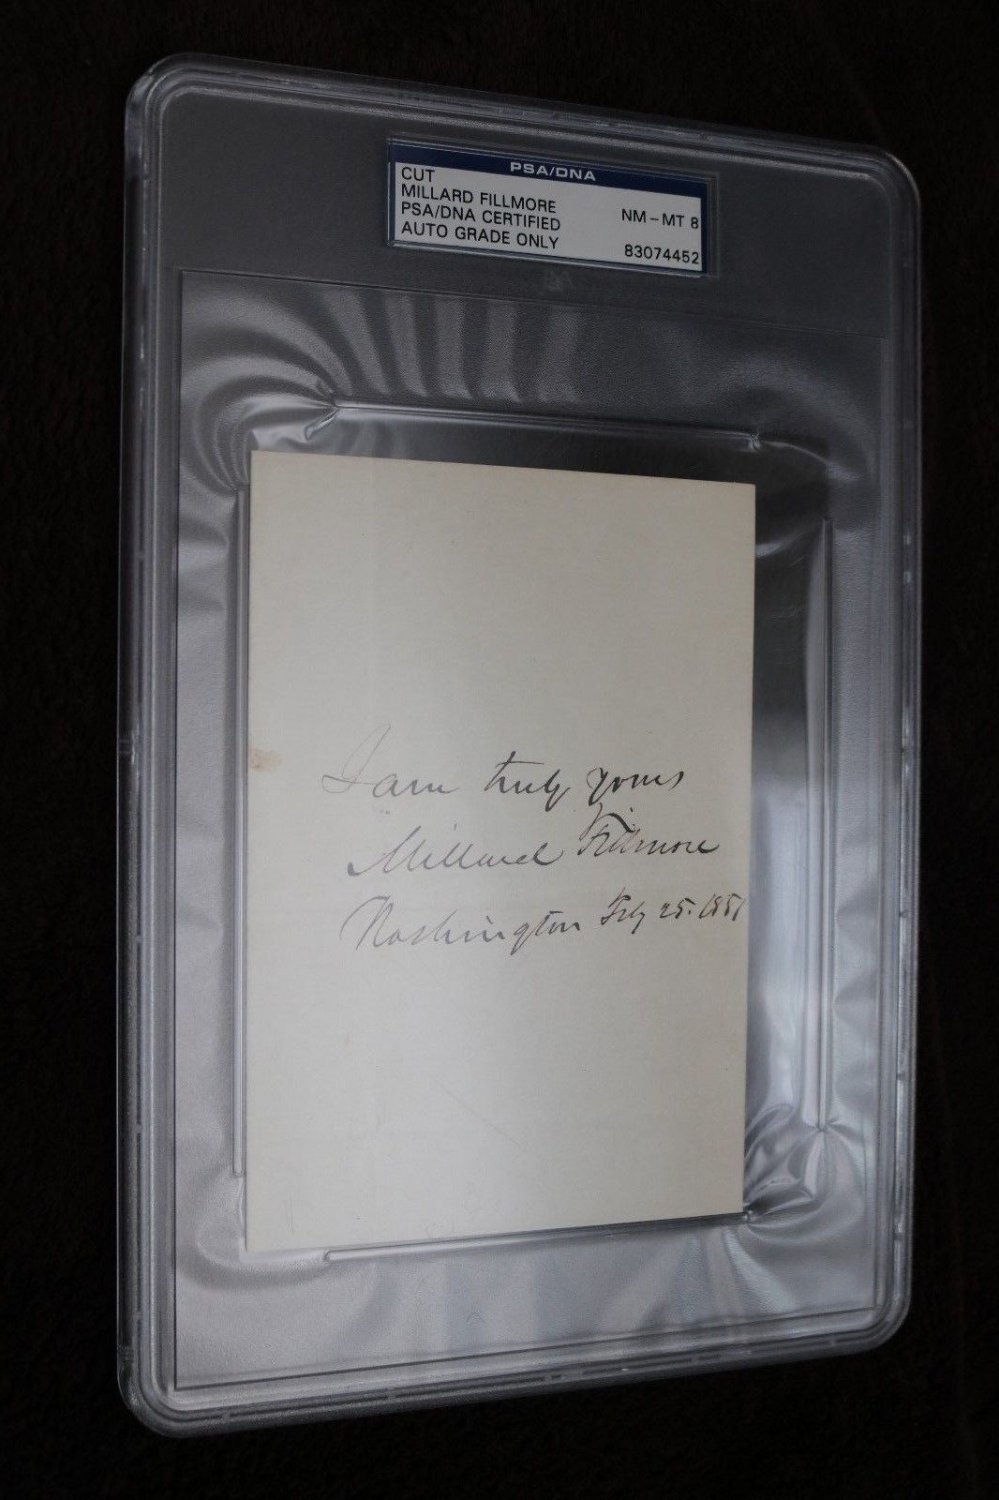 PSA/DNA
CUT
MILLARD FILLMORE
PSA/DNA CERTIFIED
AUTO GRADE ONLY
NM-MT 8
83074452
I am truly yours
Millard Fillmore
Washington Feby 25. 1851